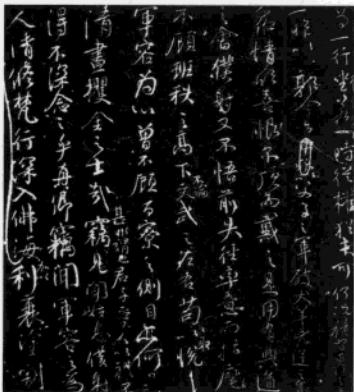 為一行坐一時從權猶未可何況積習
一昨以郭令公父子之軍破犬羊凶逆之
衆情欣喜恨不頂而戴之是用有興道
之會僕射又不悟前失徑率意而指麾
不顧班秩之高下不論文武之左右苟以取悅
軍容為心曾不顧百寮之側目亦何
清晝攫金之士哉甚非謂也君子愛人以禮竊見聞姑息僕射
得不深念之乎真卿竊聞軍容之為
人清修梵行深入佛海利衰塗割